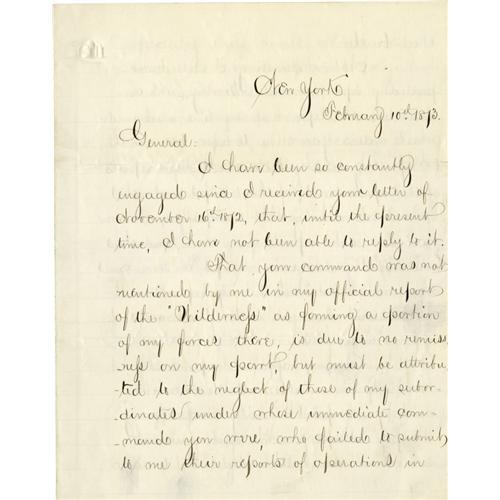 New York,
February 10th 1873.
General:
I have been so constantly
engaged since I received your letter of
November 16th 1872, that, until the present
time, I have not been able to reply to it.
That your command was not
mentioned by me in my official report
of the "Wilderness" as forming a portion
of my forces there, is due to no remiss-
-ness on my part, but must be attribu-
-ted to the neglect of those of my subor-
-dinates under whose immediate com-
-mand you were, who failed to submit
to me their reports of operations in